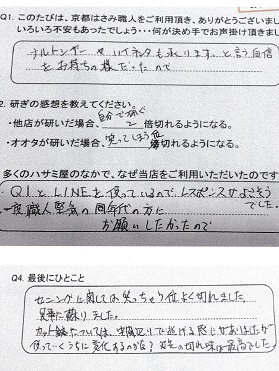 Q1. このたびは、京都はさみ職人をご利用頂き、ありがとうございまし
いろいろ不安もあったでしょう・・・何が決め手でお声掛け頂きまし
も承ります。と言う自信
をお持ちの様だったので
2. 研ぎの感想を教えてください。
・他店が研いだ場合、自分で研ぐ 2 倍切れるようになる。
・オオタが研いだ場合、笑ってしまう位 切れるようになる。
多くのハサミ屋のなかで、なぜ当店をご利用いただいたのです
Q1とLINEを使っているのでレスポンスがよさそうでした。
職人堅気の同年代の方に
お願いしたかったので
Q4. 最後にひとこと
セニングに関しては笑っちゃう位よく切れました。
見事に蘇りました。
カット鋏については、で逃げる感じがありましたが
使っていくうちに変化するのかな?の切れ味は最高でした